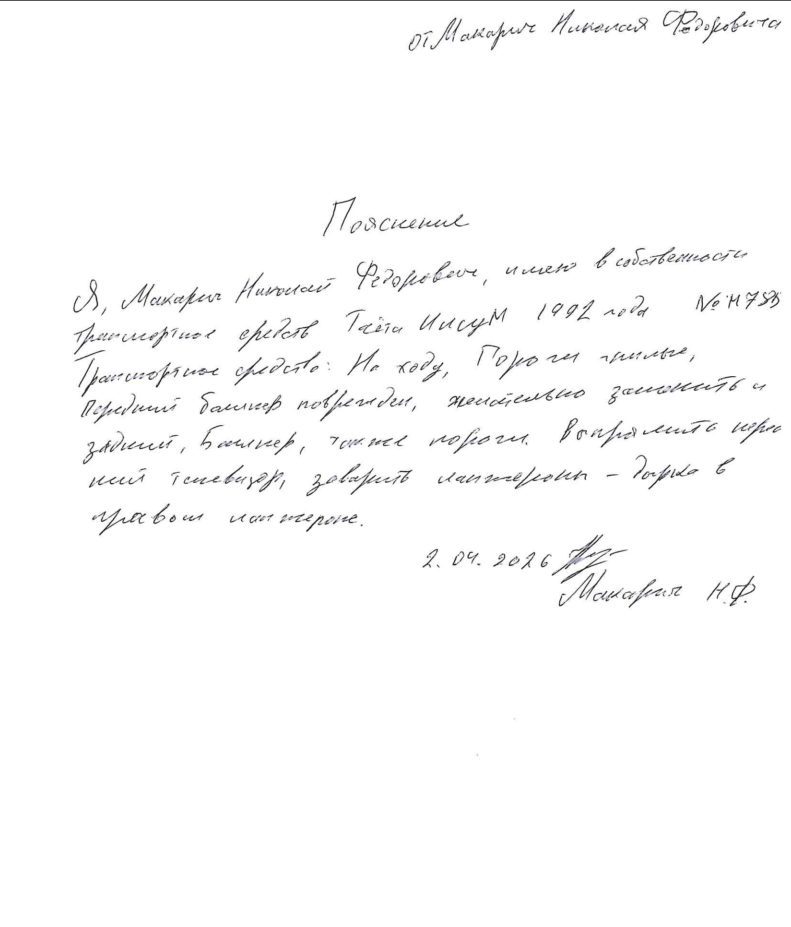 от Макарич Николая Федоровича
Пояснение
Я, Макарич Николай Федорович, имею в собственности
транспортное средств Таёта 1992 года №
Транспортное средство: На ходу, Пороги гнилые,
Передний бампер поврежден, желательно заменить и
задний, Бампер, также пороги. Выпрямить перед
ний телевизор, заварить лонжероны – дырка в
правом лонжероне.
2.04.2026
Макарич Н.Ф.